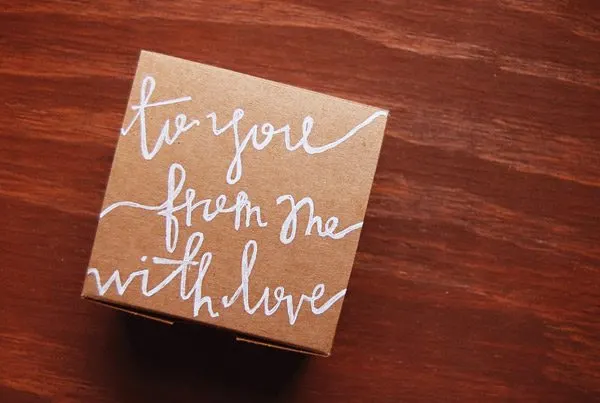 to you
from me
with love